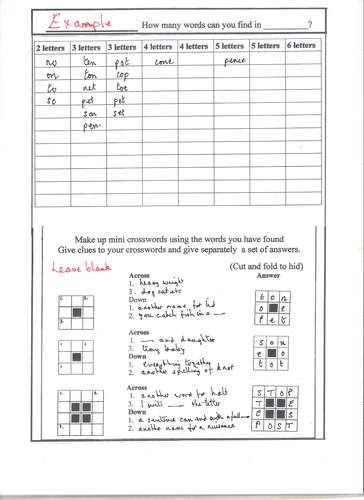 Example How many words can you find in ____________?
2 letters 3 letters 3 letters 4 letters 4 letters 5 letters 5 letters 6 letters
no ten pot cone pence
on ton cop
to net toe
so pet pot
son set
pen
Make up mini crosswords using the words you have found
Give clues to your crosswords and give separately a set of answers.
Leave blank (Cut and fold to hid)
Across Answer
1. heavy weight
3. dog cat etc
Down
1. another name for lid
2. you catch fish in a __
1. 2.
3.
t o n
o e
p e t
Across
1. __ and daughter
3. tiny baby
Down
1. everything together
2. another spelling of knot
1. 2.
3
s o n
e o
t o t
Across
1. another word for halt
3. I will __ the letter
Down
1. a sentence can end with a full __
2. another name for a nuisance
1. 2.
3.
S T O P
T E
S
P O S T